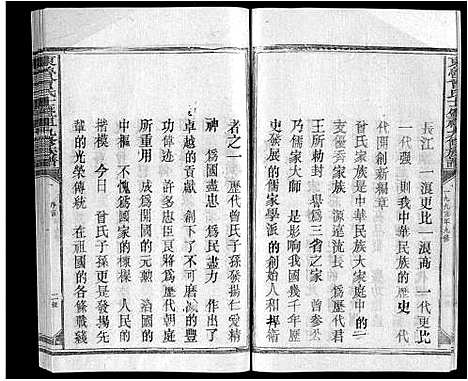 長江　一浪更比一浪高　一代更比
一代强　則我中華民族的歷史　代
代開創新編章
曾氏家族　是中華民族大家庭中的一
支優秀家族　爲民族　爲歷代君
王所勅封　譽爲三省之家　曾參公
是的儒家大師　是我國幾千年歷
史發展的儒家學派的創始人和捍衛
者之一　歷代曾氏子孫發揚仁愛精
神　爲國盡忠　爲民盡力　作出了
卓越的貢獻　創下了不可磨滅的豐
功偉績　許多忠臣良將爲歷代朝庭
所重用　成爲開國的元勲　治國的
中樞　不愧爲國家的棟樑　人民的
楷模　今日　曾氏子孫更是發揚先
輩的光榮傳統　在祖國的各條戰綫
序言